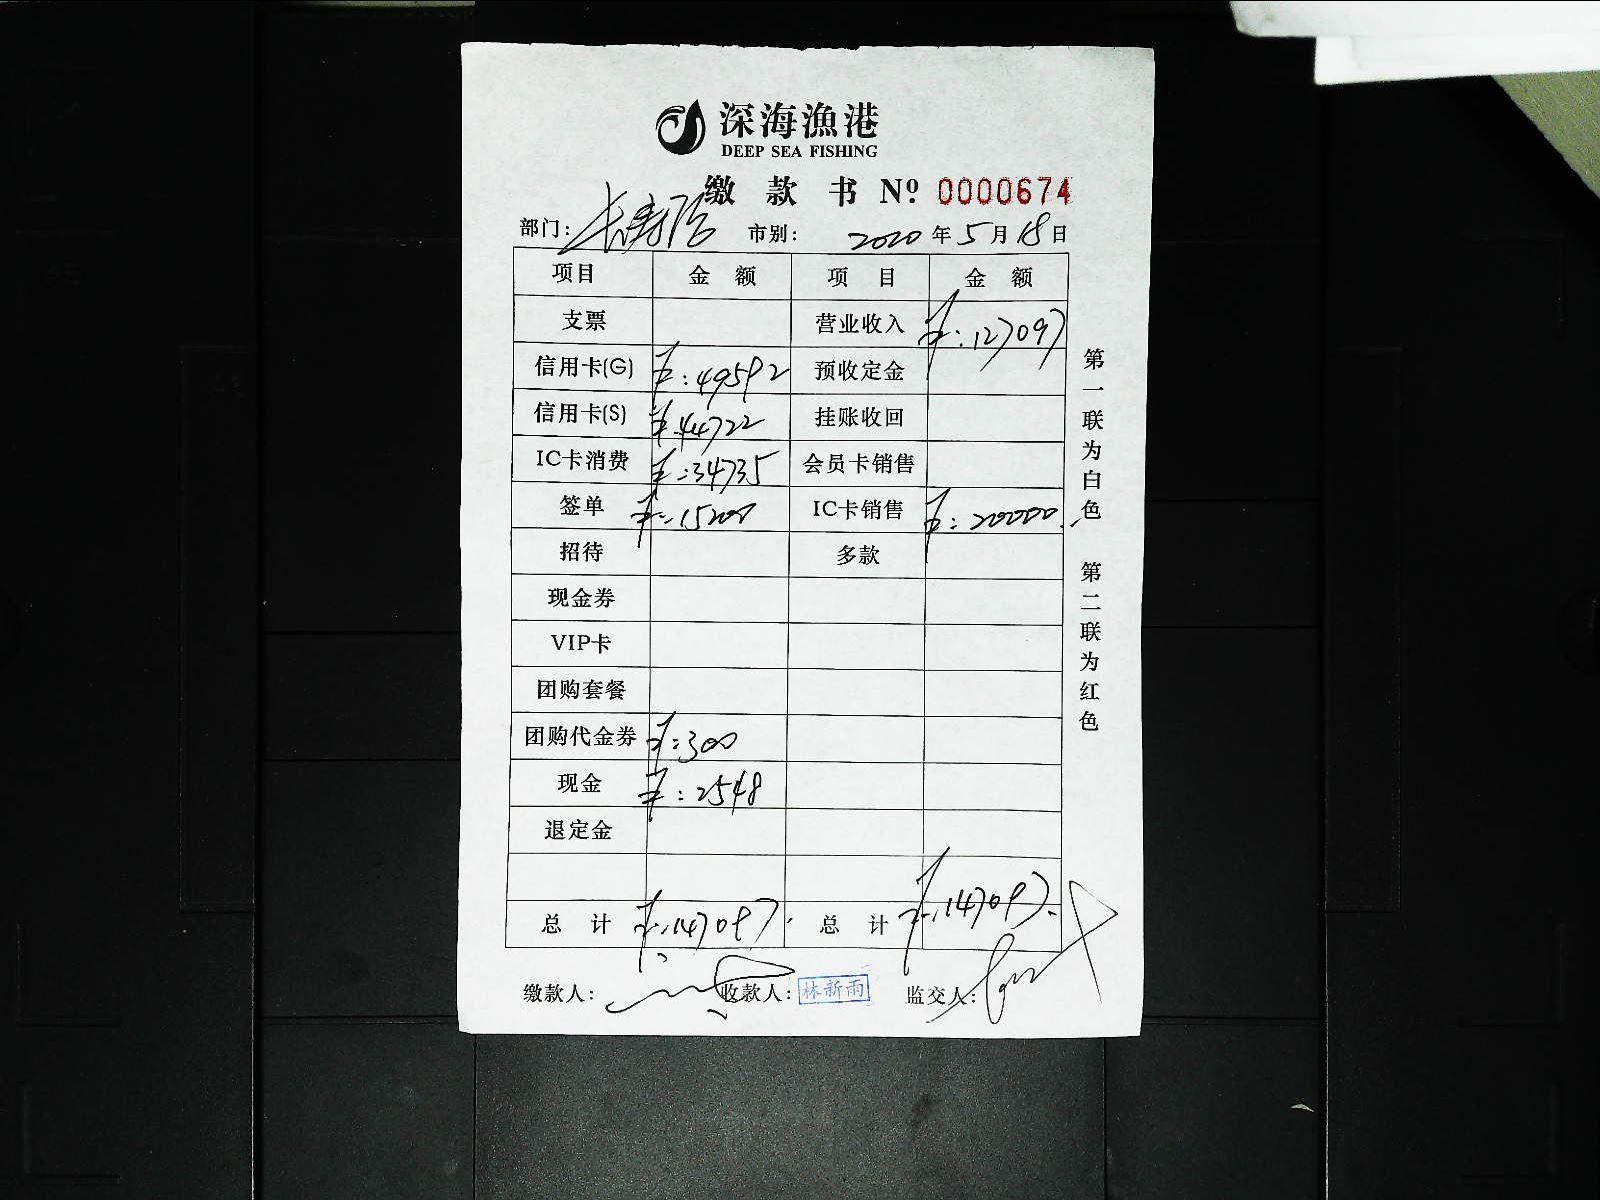 深海漁港
DEEP SEA FISHING
缴款书 Nº 0000674
部门: 长寿店 市别: 2020年5月18日
项目 金额 项目 金额
支票 营业收入 ¥:127097
信用卡(G) ¥:49592 预收定金
信用卡(S) ¥:44722 挂账收回
IC卡消费 ¥:34735 会员卡销售
签单 ¥:15200 IC卡销售 ¥:20000
招待 多款
现金券
VIP卡
团购套餐
团购代金券 ¥:300
现金 ¥:2548
退定金
总计 ¥:147097 总计 ¥:147097
缴款人: 收款人: 林新雨 监交人:
第一联为白色 第二联为红色